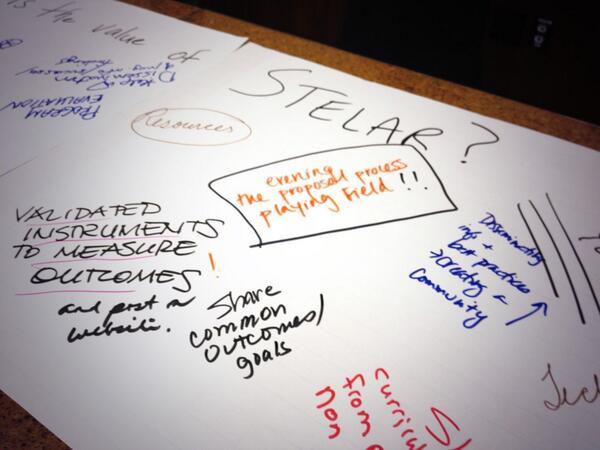 is the value of
STELAR?
PROGRAM
EVALUATION
Resources
evening
the proposal process
playing field!!
VALIDATED
INSTRUMENTS
TO MEASURE
OUTCOMES!
and post on
website.
Share
common
outcomes/
goals
Disseminating
info +
best practices
→ creating a
community
from
non